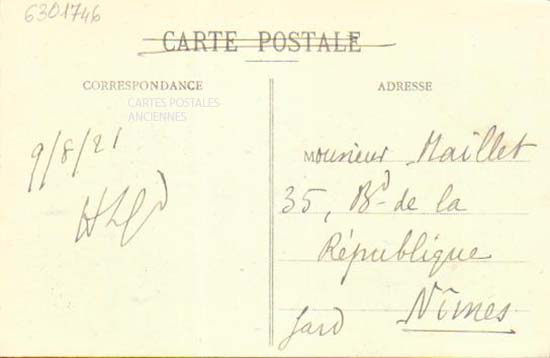 6301746
CARTE POSTALE
CORRESPONDANCE
CARTES POSTALES
ANCIENNES
9/8/21
ADRESSE
Monsieur Maillet
35, Bd de la
République
Nîmes
Gard